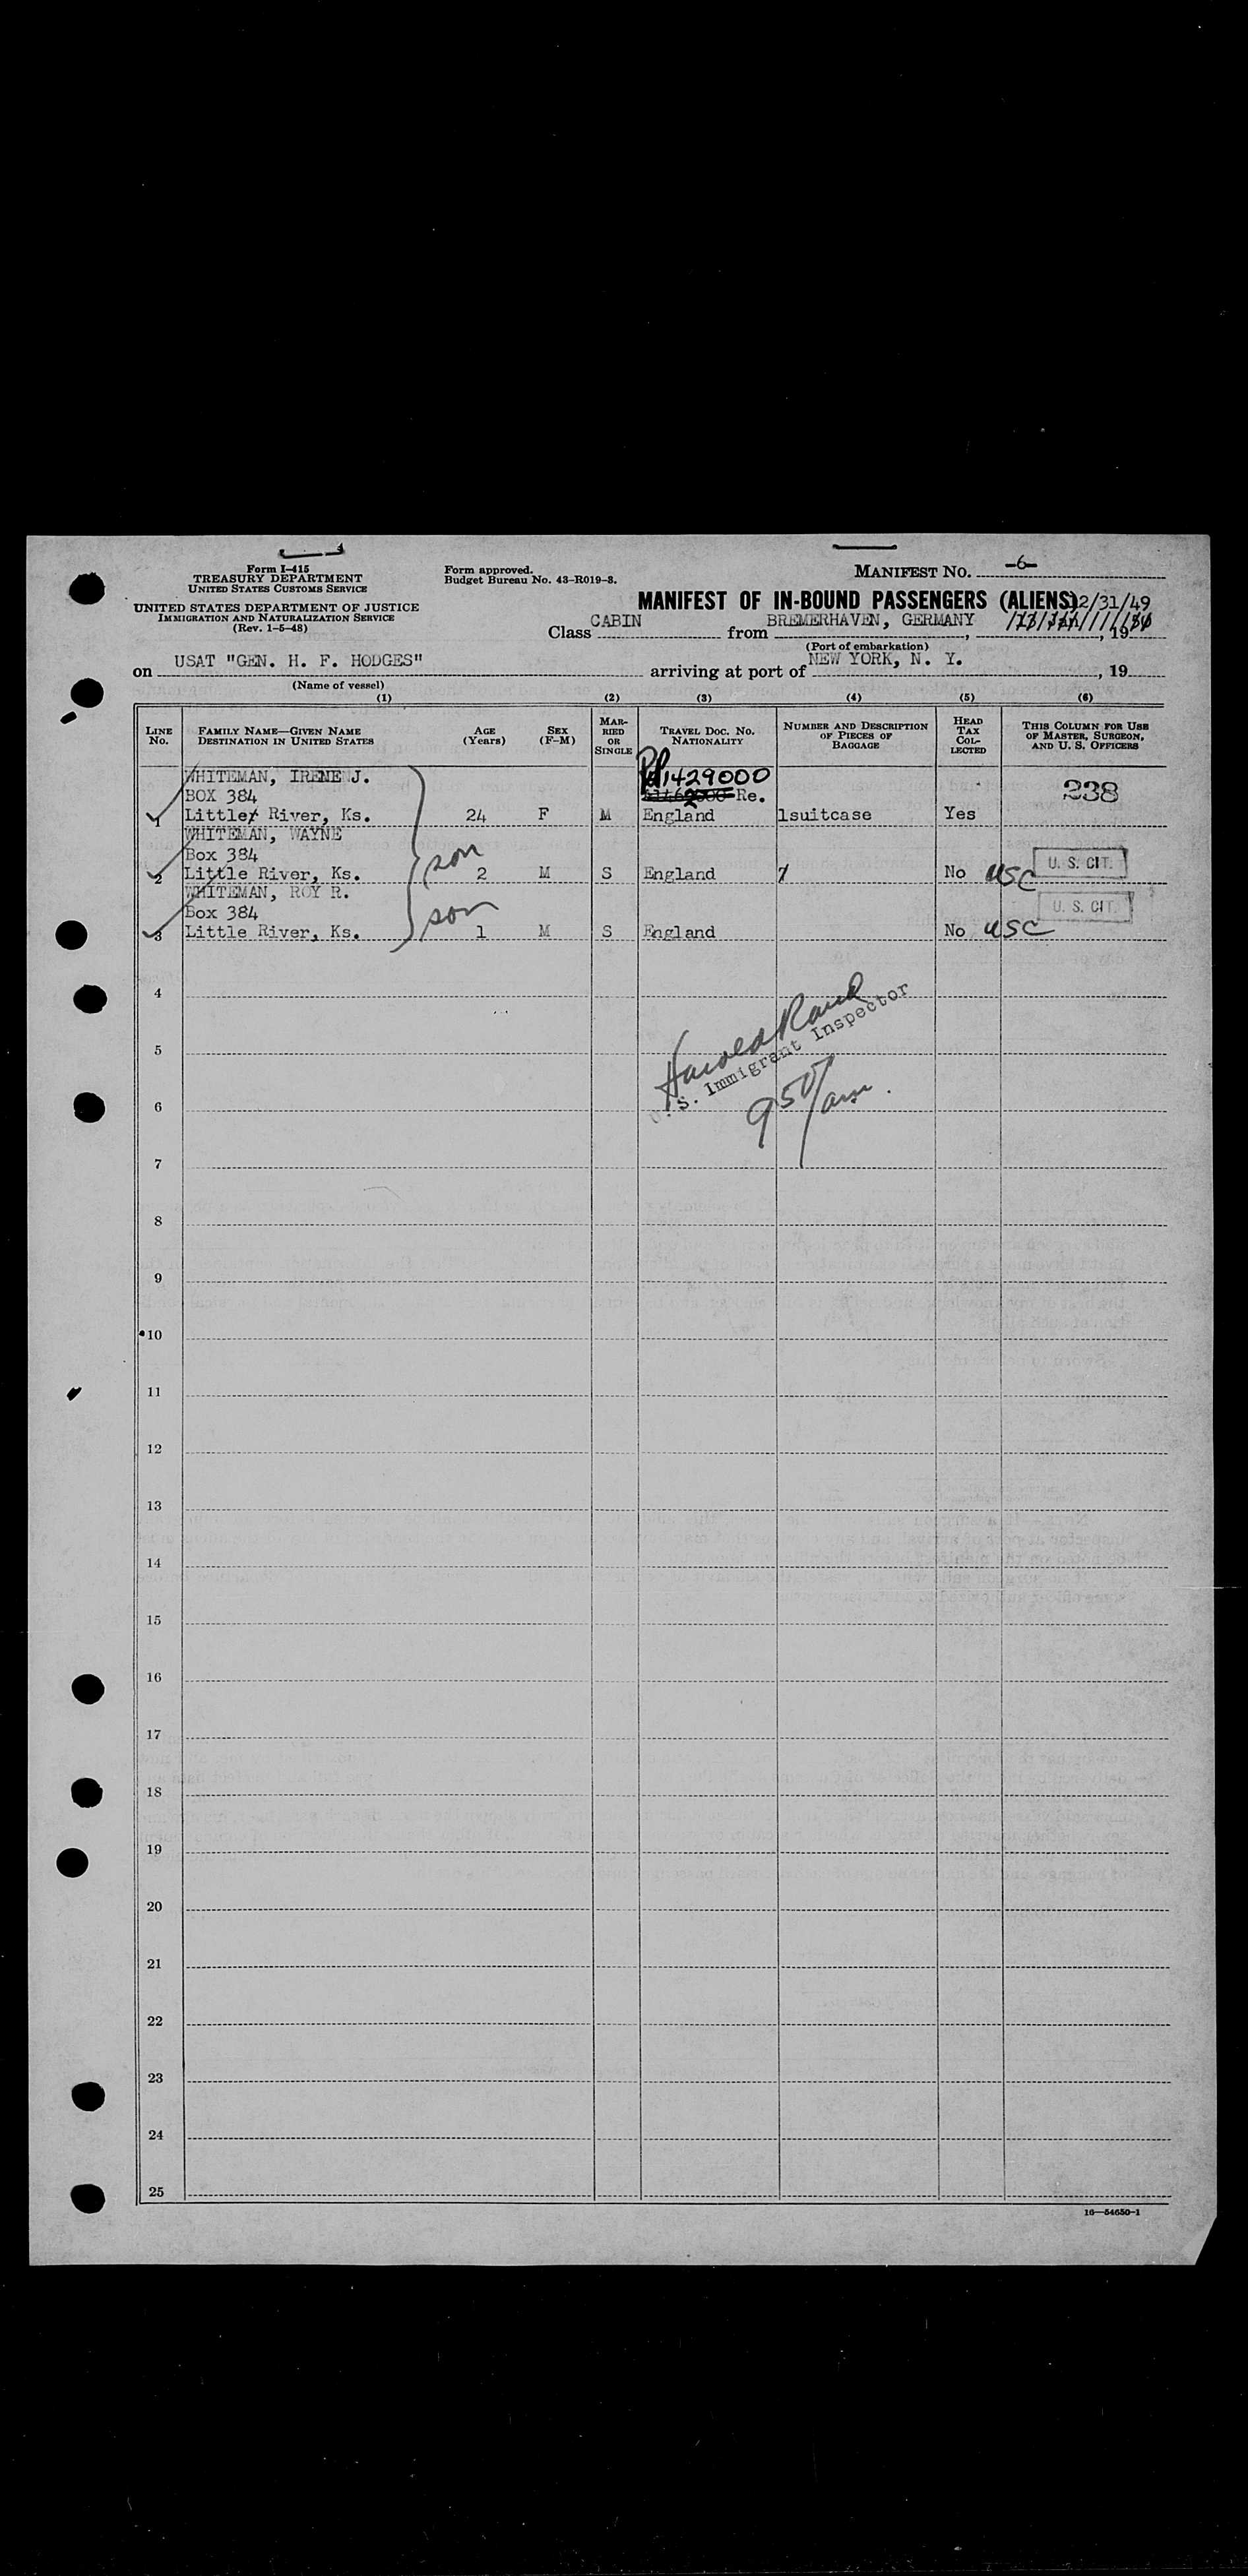 Form I-415
TREASURY DEPARTMENT
UNITED STATES CUSTOMS SERVICE
UNITED STATES DEPARTMENT OF JUSTICE
IMMIGRATION AND NATURALIZATION SERVICE
(Rev. 1-5-48)
Form approved.
Budget Bureau No. 43-R019-3.
MANIFEST NO. -6-
MANIFEST OF IN-BOUND PASSENGERS (ALIENS)
12/31/49
Class CABIN from BREMERHAVEN, GERMANY, , 19
(Port of embarkation)
on USAT "GEN. H. F. HODGES" arriving at port of NEW YORK, N. Y. , 19
(Name of vessel)
(1) (2) (3) (4) (5) (6)
LINE No. FAMILY NAME—GIVEN NAME DESTINATION IN UNITED STATES AGE (Years) SEX (F-M) MARRIED OR SINGLE TRAVEL DOC. NO. NATIONALITY NUMBER AND DESCRIPTION OF PIECES OF BAGGAGE HEAD TAX COLLECTED THIS COLUMN FOR USE OF MASTER, SURGEON, AND U. S. OFFICERS
WHITEMAN, IRENE J. 1429000
BOX 384 Re. 238
1 Little River, Ks. 24 F M England 1suitcase Yes
WHITEMAN, WAYNE
Box 384 son U. S. CIT.
2 Little River, Ks. 2 M S England No USC
WHITEMAN, ROY R.
Box 384 son U. S. CIT.
3 Little River, Ks. 1 M S England No USC
4
Harold Rand
U. S. Immigrant Inspector
5
950/am.
6
7
8
9
10
11
12
13
14
15
16
17
18
19
20
21
22
23
24
25
16—54650-1